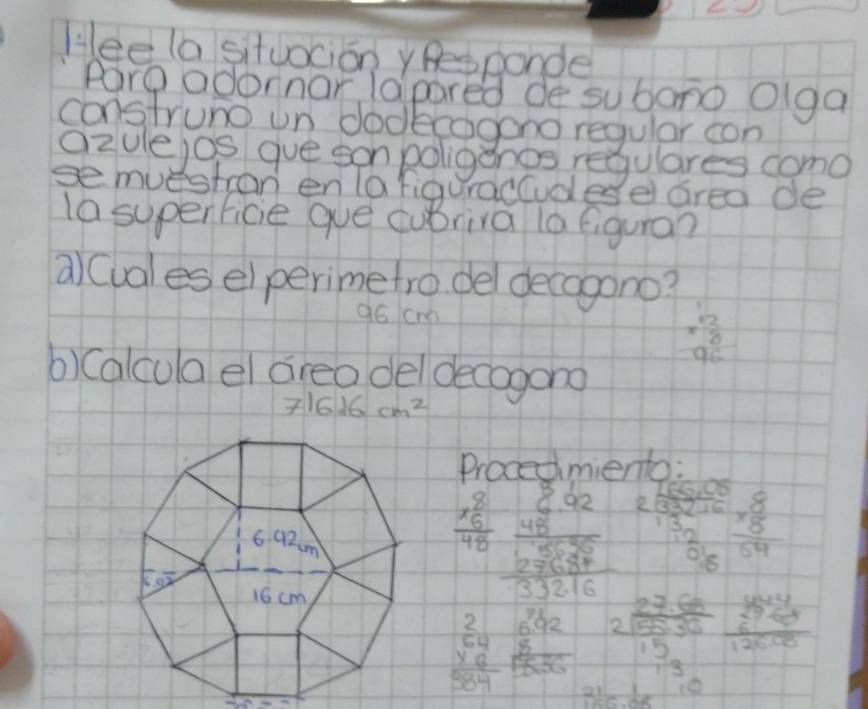 1-lee la situación y Responde
Para adornar la pared de su baño Olga
construño un dodecagono regular con
azulejos que son poligonos regulares como
se muestran en la figura¿Cual es el área de
la superficie que cubrira la figura?
a) Cual es el perimetro del decagono?
96 cm
12
×8
96
b) Calcula el área del decagono
716.16 cm²
Procedimiento:
8
×6
48
6.92
48
5536
2768+
332.16
166.08
2 332.16
13
12
01
8
×8
64
6.92 cm
16 cm
6.92
2
64
×6
384
6.92
8
55.36
27.68
2 55.36
15
13
10
27.68
6
166.08